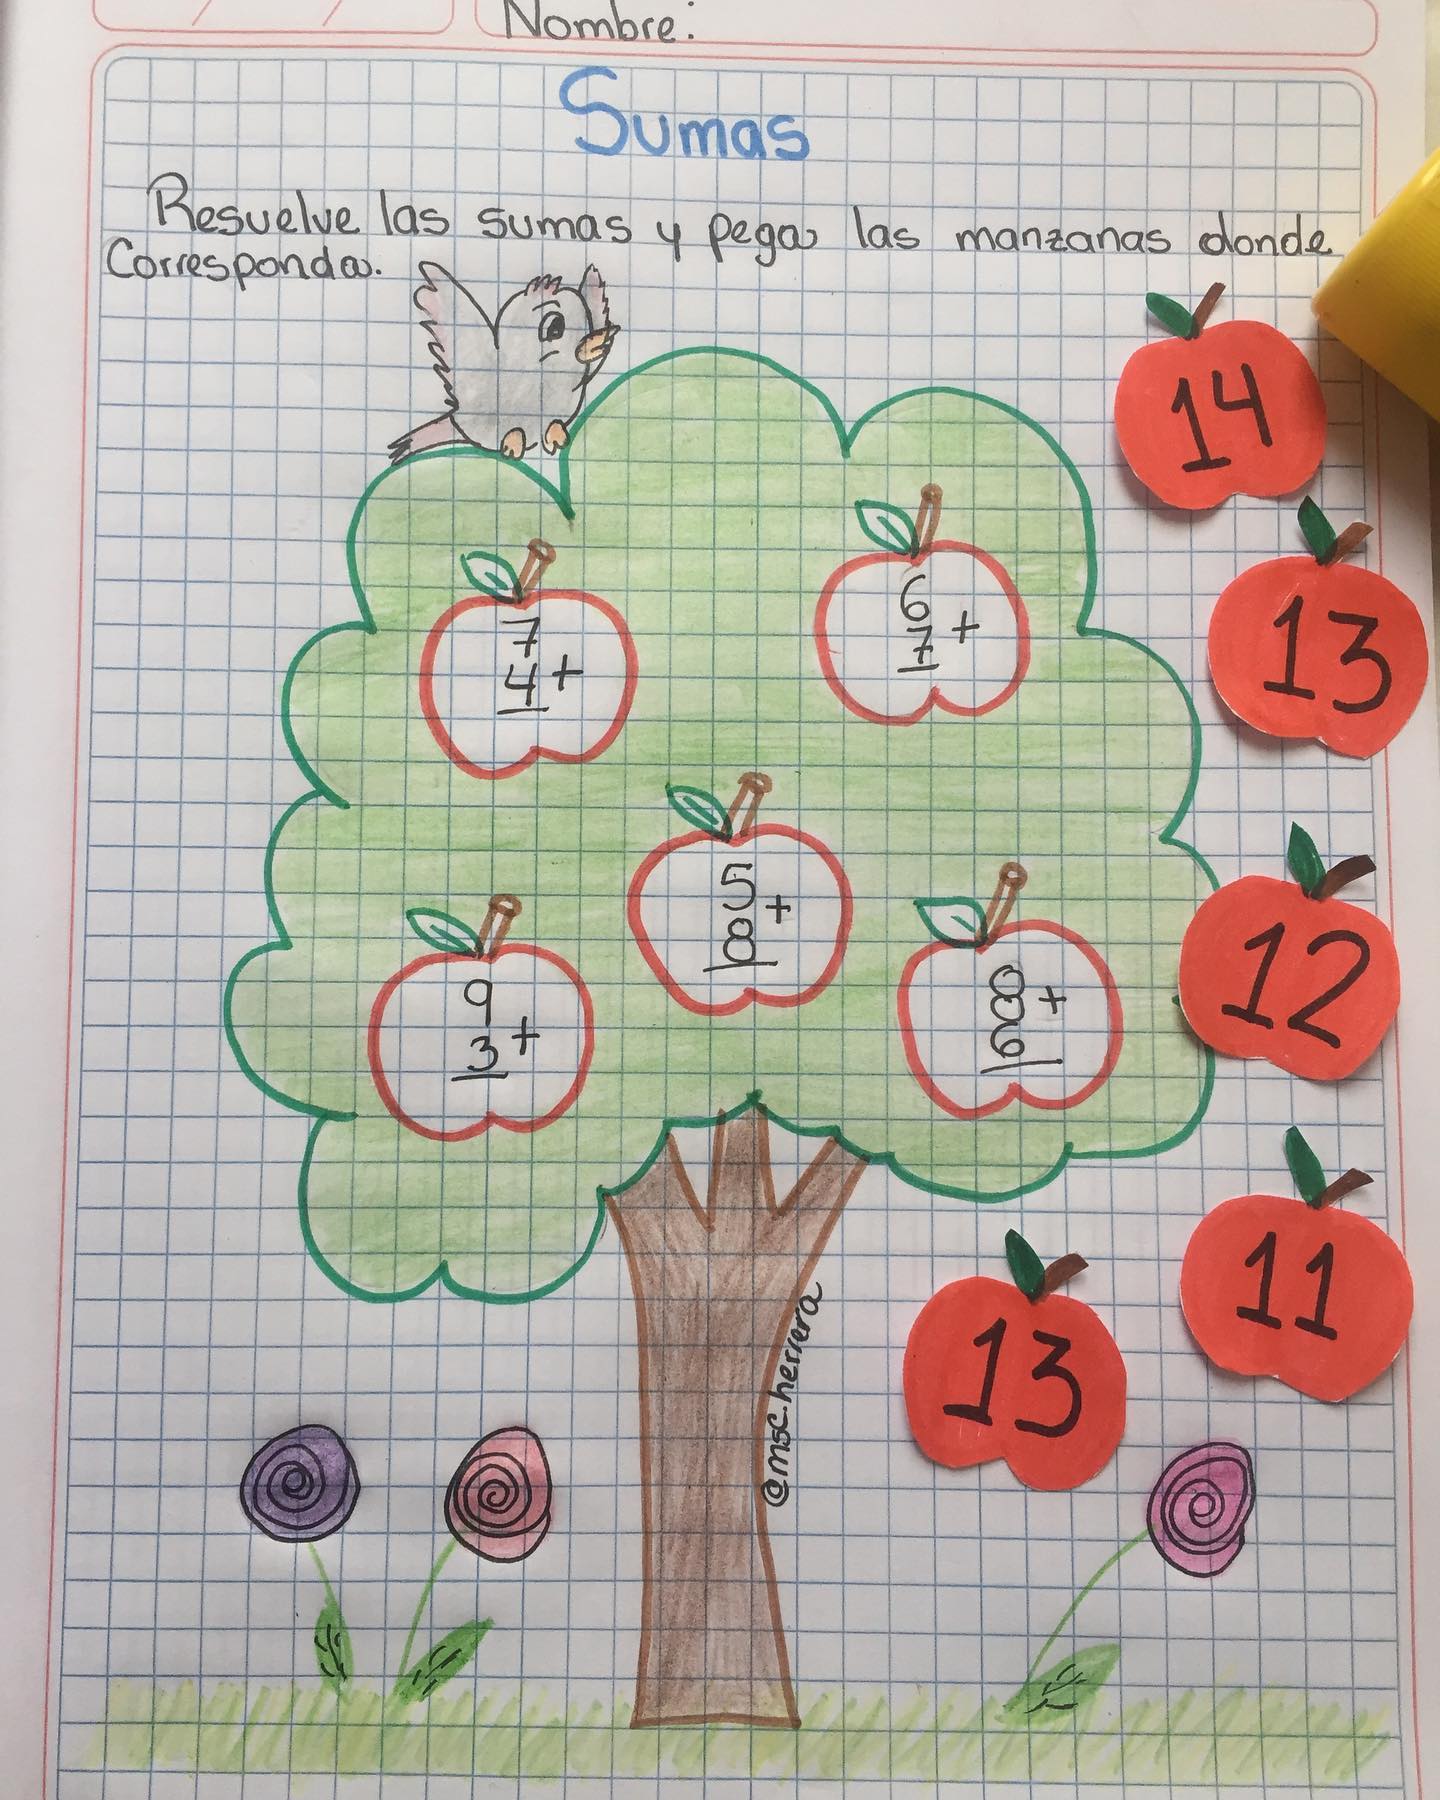 Nombre:
Sumas
Resuelve las sumas y pega las manzanas donde
Corresponda.
14
13
7
4 +
6
7 +
5
8 +
12
9
3 +
8
6 +
11
13
@msc.herrera